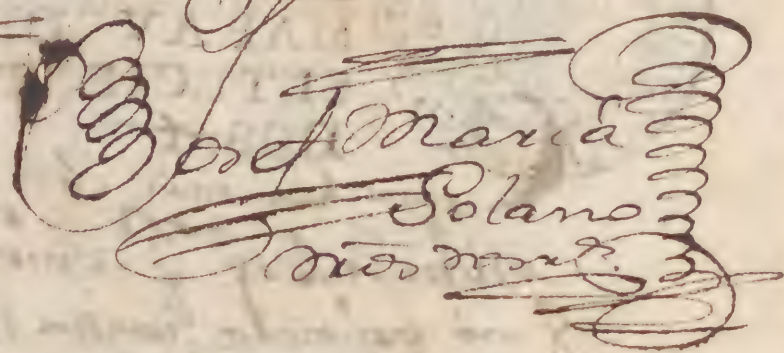 Josef Maria
Solano